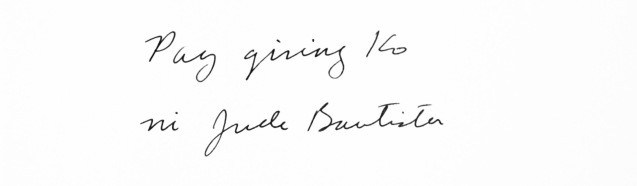 Pag gising Ko
ni Jude Bautista